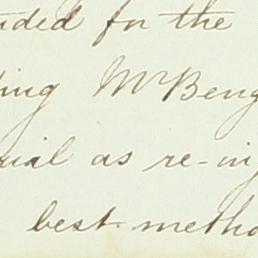 nded for the
ing Mr Beng
ial as re-in
best metho